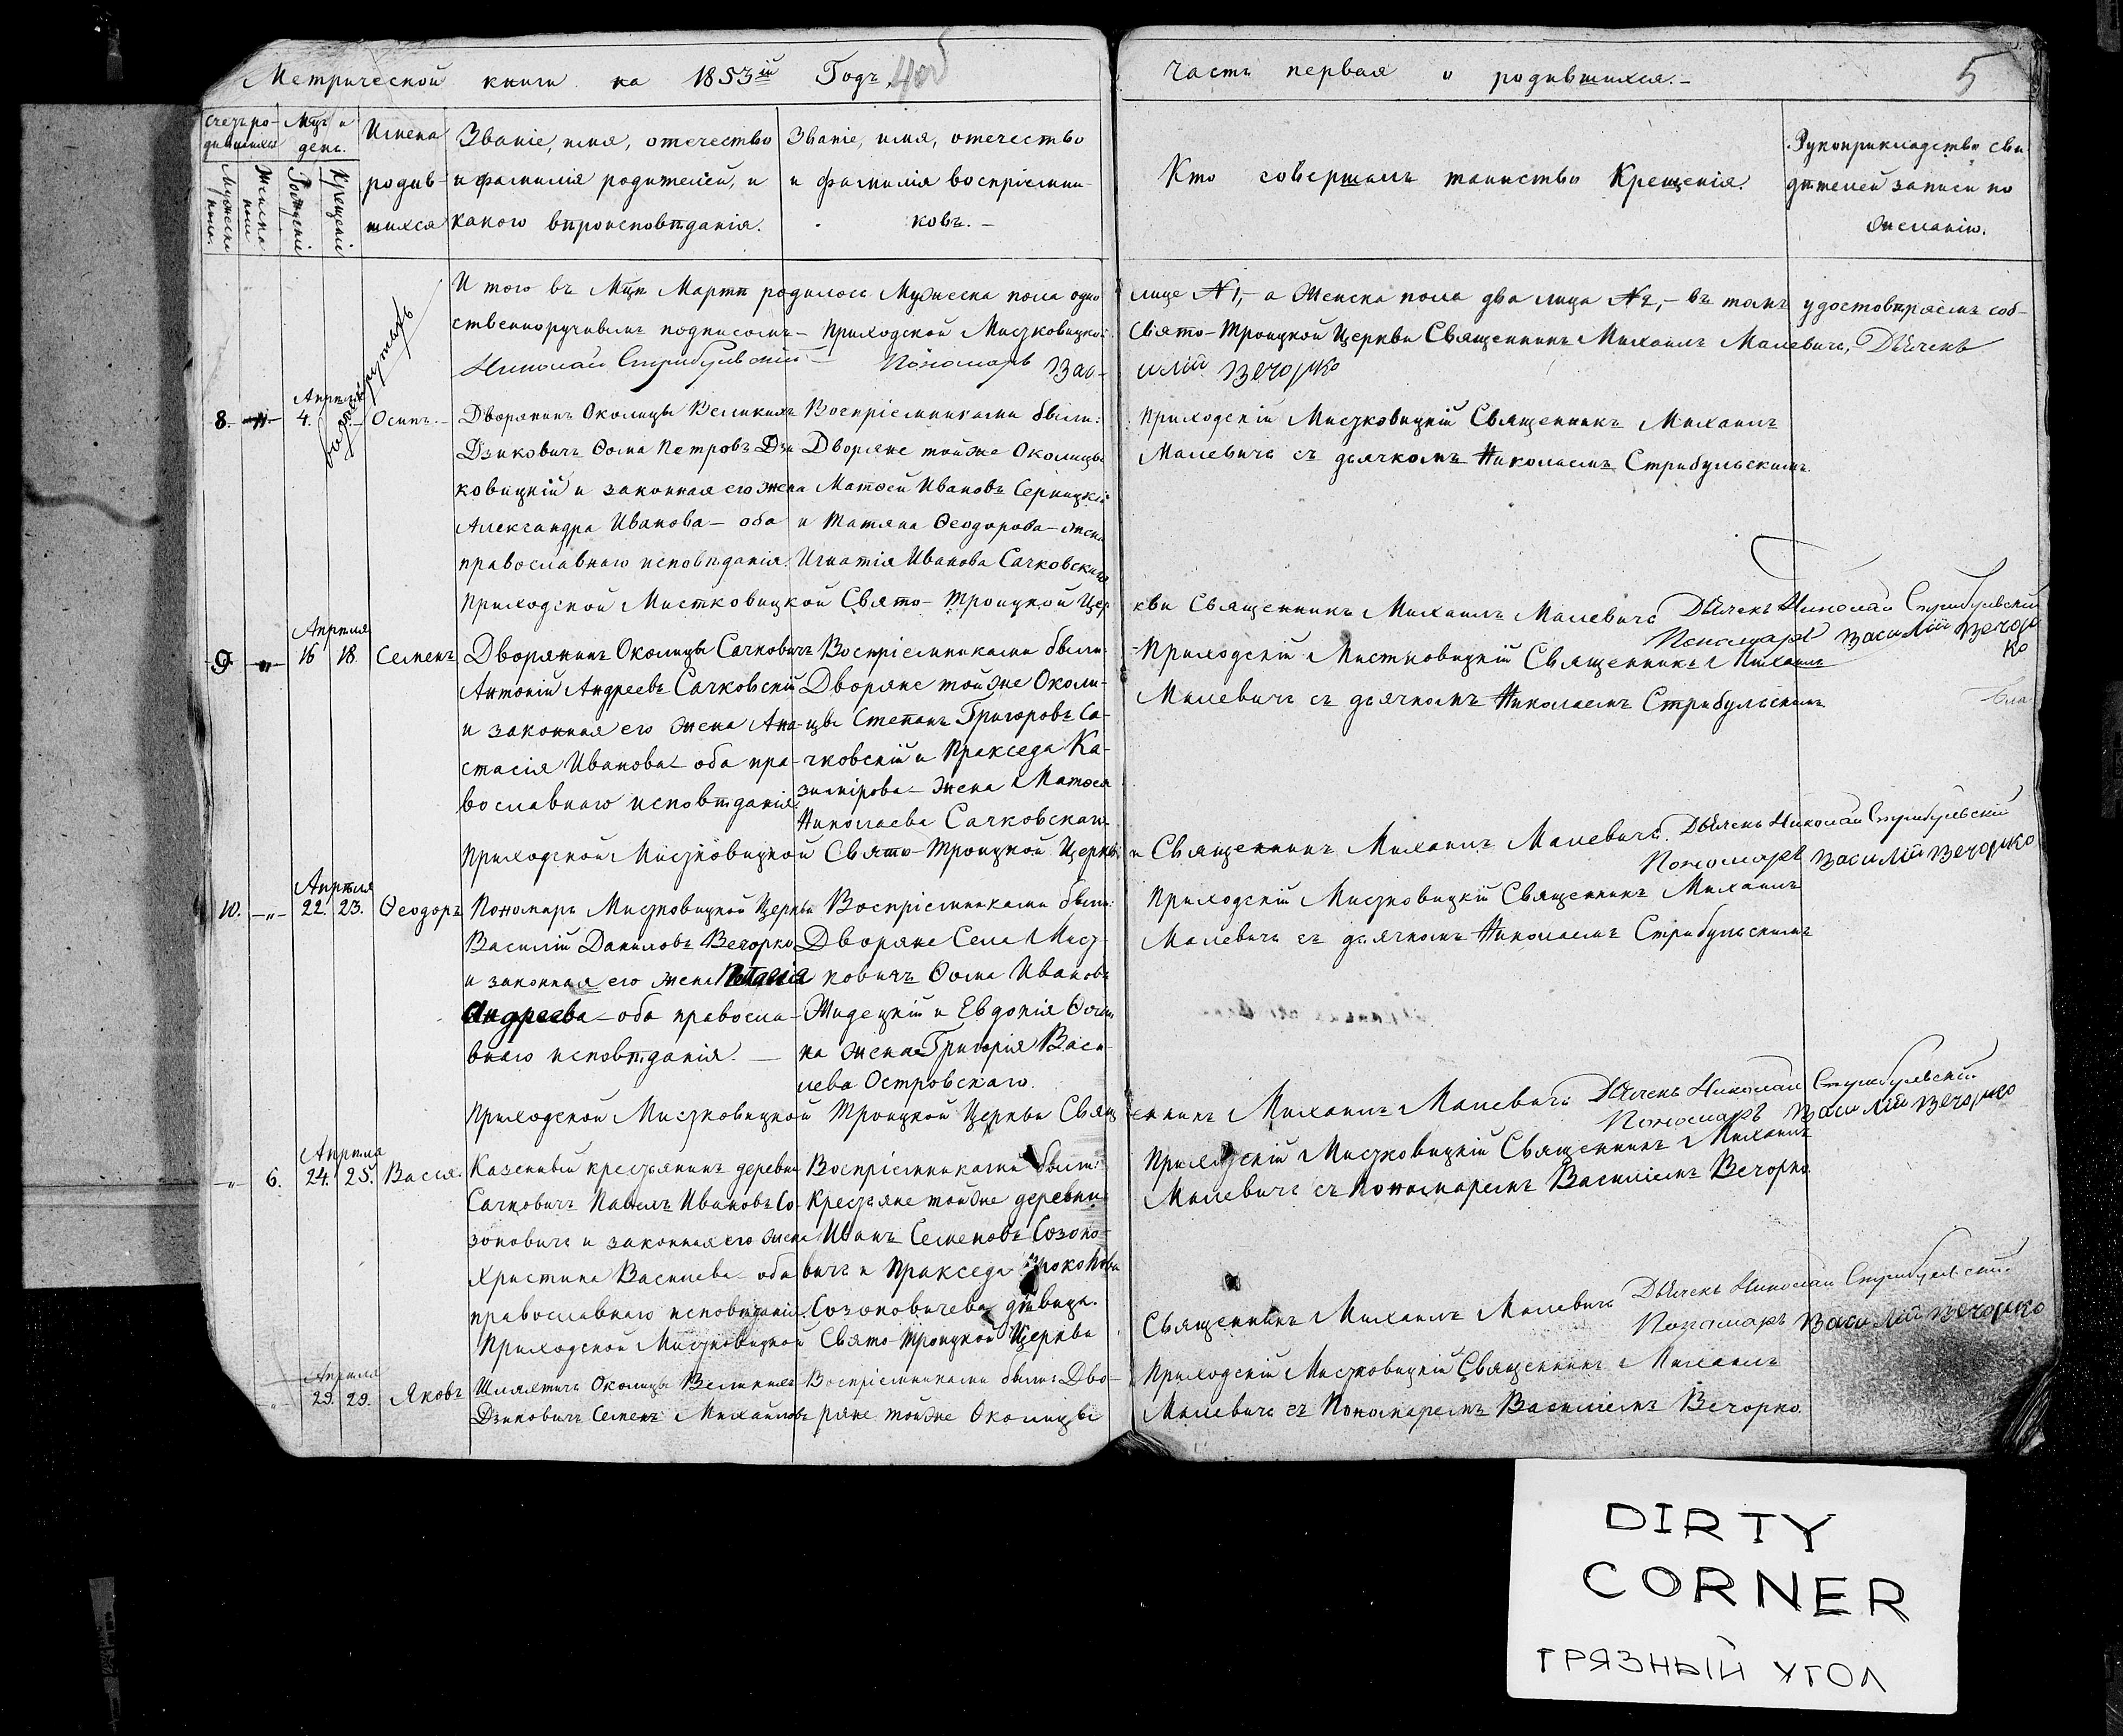 Метрической книги на 1853й Годъ. 4об
Часть первая о родившихся.
5
Счетъ ро-
дившихся
Мужеска
пола.
Женска
пола
Мцъ и
день.
Рожденія
Крещенія
Имена
родив-
шихся
Званіе, имя, отчество
и фамилія родителей, и
какого вѣроисповѣданія.
Званіе, имя, отчество
и фамилія воспріемни-
ковъ.
Кто совершалъ таинство Крещенія.
Рукоприкладство сви
дѣтелей записи по
желанію.
И того въ Мцѣ Мартѣ родилось Мужеска пола одно лице №1,- а Женска пола два лица №2,- въ томъ удостовѣряемъ соб-
ственноручнымъ подписомъ - Приходской Мистковицкой Свято-Троицкой Церкви Священникъ Михаилъ Малевичъ, Дьячекъ
Николай Стрибульскій Пономарь Вас- илій Вечорко
8.
Апрѣля
4.
Осипъ.
Дворянинъ Околицы Великихъ
Дзиковичъ Ѳома Петровъ Дзи
ковицкій и законная его жена
Александра Иванова - оба
православнаго исповѣданія.
Воспріемниками были:
Дворяне тойже Околицы
Матѳей Ивановъ Серницкій
и Татяна Ѳеодорова - жена
Игнатія Иванова Сачковскаго
Приходскій Мистковицкій Священникъ Михаилъ
Малевичъ съ дьячкомъ Николаемъ Стрибульскимъ.
Приходской Мистковицкой Свято-Троицкой Цер кви Священникъ Михаилъ Малевичъ Дьячекъ Николай Стрибульскій
Пономарь Василій Вечор
ко
9
Апрѣля
16 18.
Семенъ
Дворянинъ Околицы Сачковичъ
Антоній Андреевъ Сачковскій
и законная его жена Ана-
стасія Иванова - оба пра-
вославнаго исповѣданія.
Воспріемниками были:
Дворяне тойже Околи-
цы Степанъ Григоровъ Са-
чковскій и Пракседа Ка-
зимірова - жена Матѳея
Николаева Сачковскаго
Приходскій Мистковицкій Священникъ Михаилъ
Малевичъ съ дьячкомъ Николаемъ Стрибульскимъ
Приходской Мистковицкой Свято-Троицкой Церкв и Священникъ Михаилъ Малевичъ Дьячекъ Николай Стрибульскій
Пономарь Василій Вечорко
10.
Апрѣля
22. 23.
Ѳеодоръ
Пономарь Мистковицкой Церкви
Василій Даниловъ Вечорко
и законная его жена
Андреева - оба правосла-
внаго исповѣданія.
Воспріемниками были:
Дворяне Села Мист-
ковичъ Ѳома Ивановъ
Жидецкій и Евдокія Ѳоми
на жена Григорія Васи-
лева Островскаго.
Приходскій Мистковицкій Священникъ Михаилъ
Малевичъ съ дьячкомъ Николаемъ Стрибульскимъ
Приходской Мистковицкой Троицкой Церкви Свящ енникъ Михаилъ Малевичъ Дьячекъ Николай Стрибульскій
Пономарь Василій Вечорко
6.
Апрѣля
24. 25.
Васса.
Казенный крестьянинъ деревни
Сачковичъ Павелъ Ивановъ Со-
зоновичъ и законная его жена
Христина Василева - оба
православнаго исповѣданія.
Воспріемниками были:
Крестьяне тойже деревни
Иванъ Семеновъ Созоно-
вичъ и Пракседа Прокопова
Созоновичева дѣвица.
Приходскій Мистковицкій Священникъ Михаилъ
Малевичъ съ Пономаремъ Василіемъ Вечорко.
Приходской Мистковицкой Свято Троицкой Церкви Священникъ Михаилъ Малевичъ Дьячекъ Николай Стрибульскій
Пономарь Василій Вечорко
Апрѣля
29. 29.
Яковъ
Шляхтичъ Околицы Великихъ
Дзиковичъ Семенъ Михайловъ
Воспріемниками были: Дво-
ряне тойже Околицы
Приходскій Мистковицкій Священникъ Михаилъ
Малевичъ съ Пономаремъ Василіемъ Вечорко.
DIRTY
CORNER
ГРЯЗНЫЙ УГОЛ